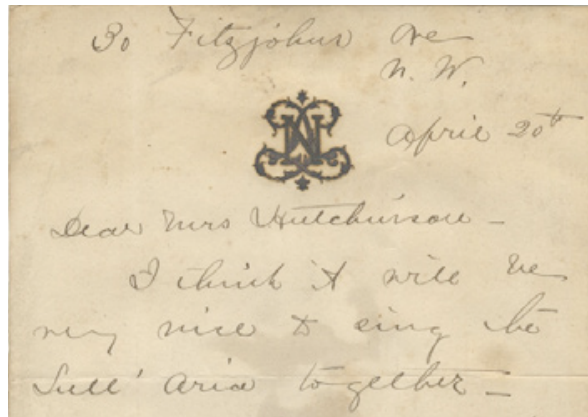 30 Fitzjohns Ave
N. W.
April 20th
Dear Mrs Hutchinson -
I think it will be
very nice to sing the
aria together -